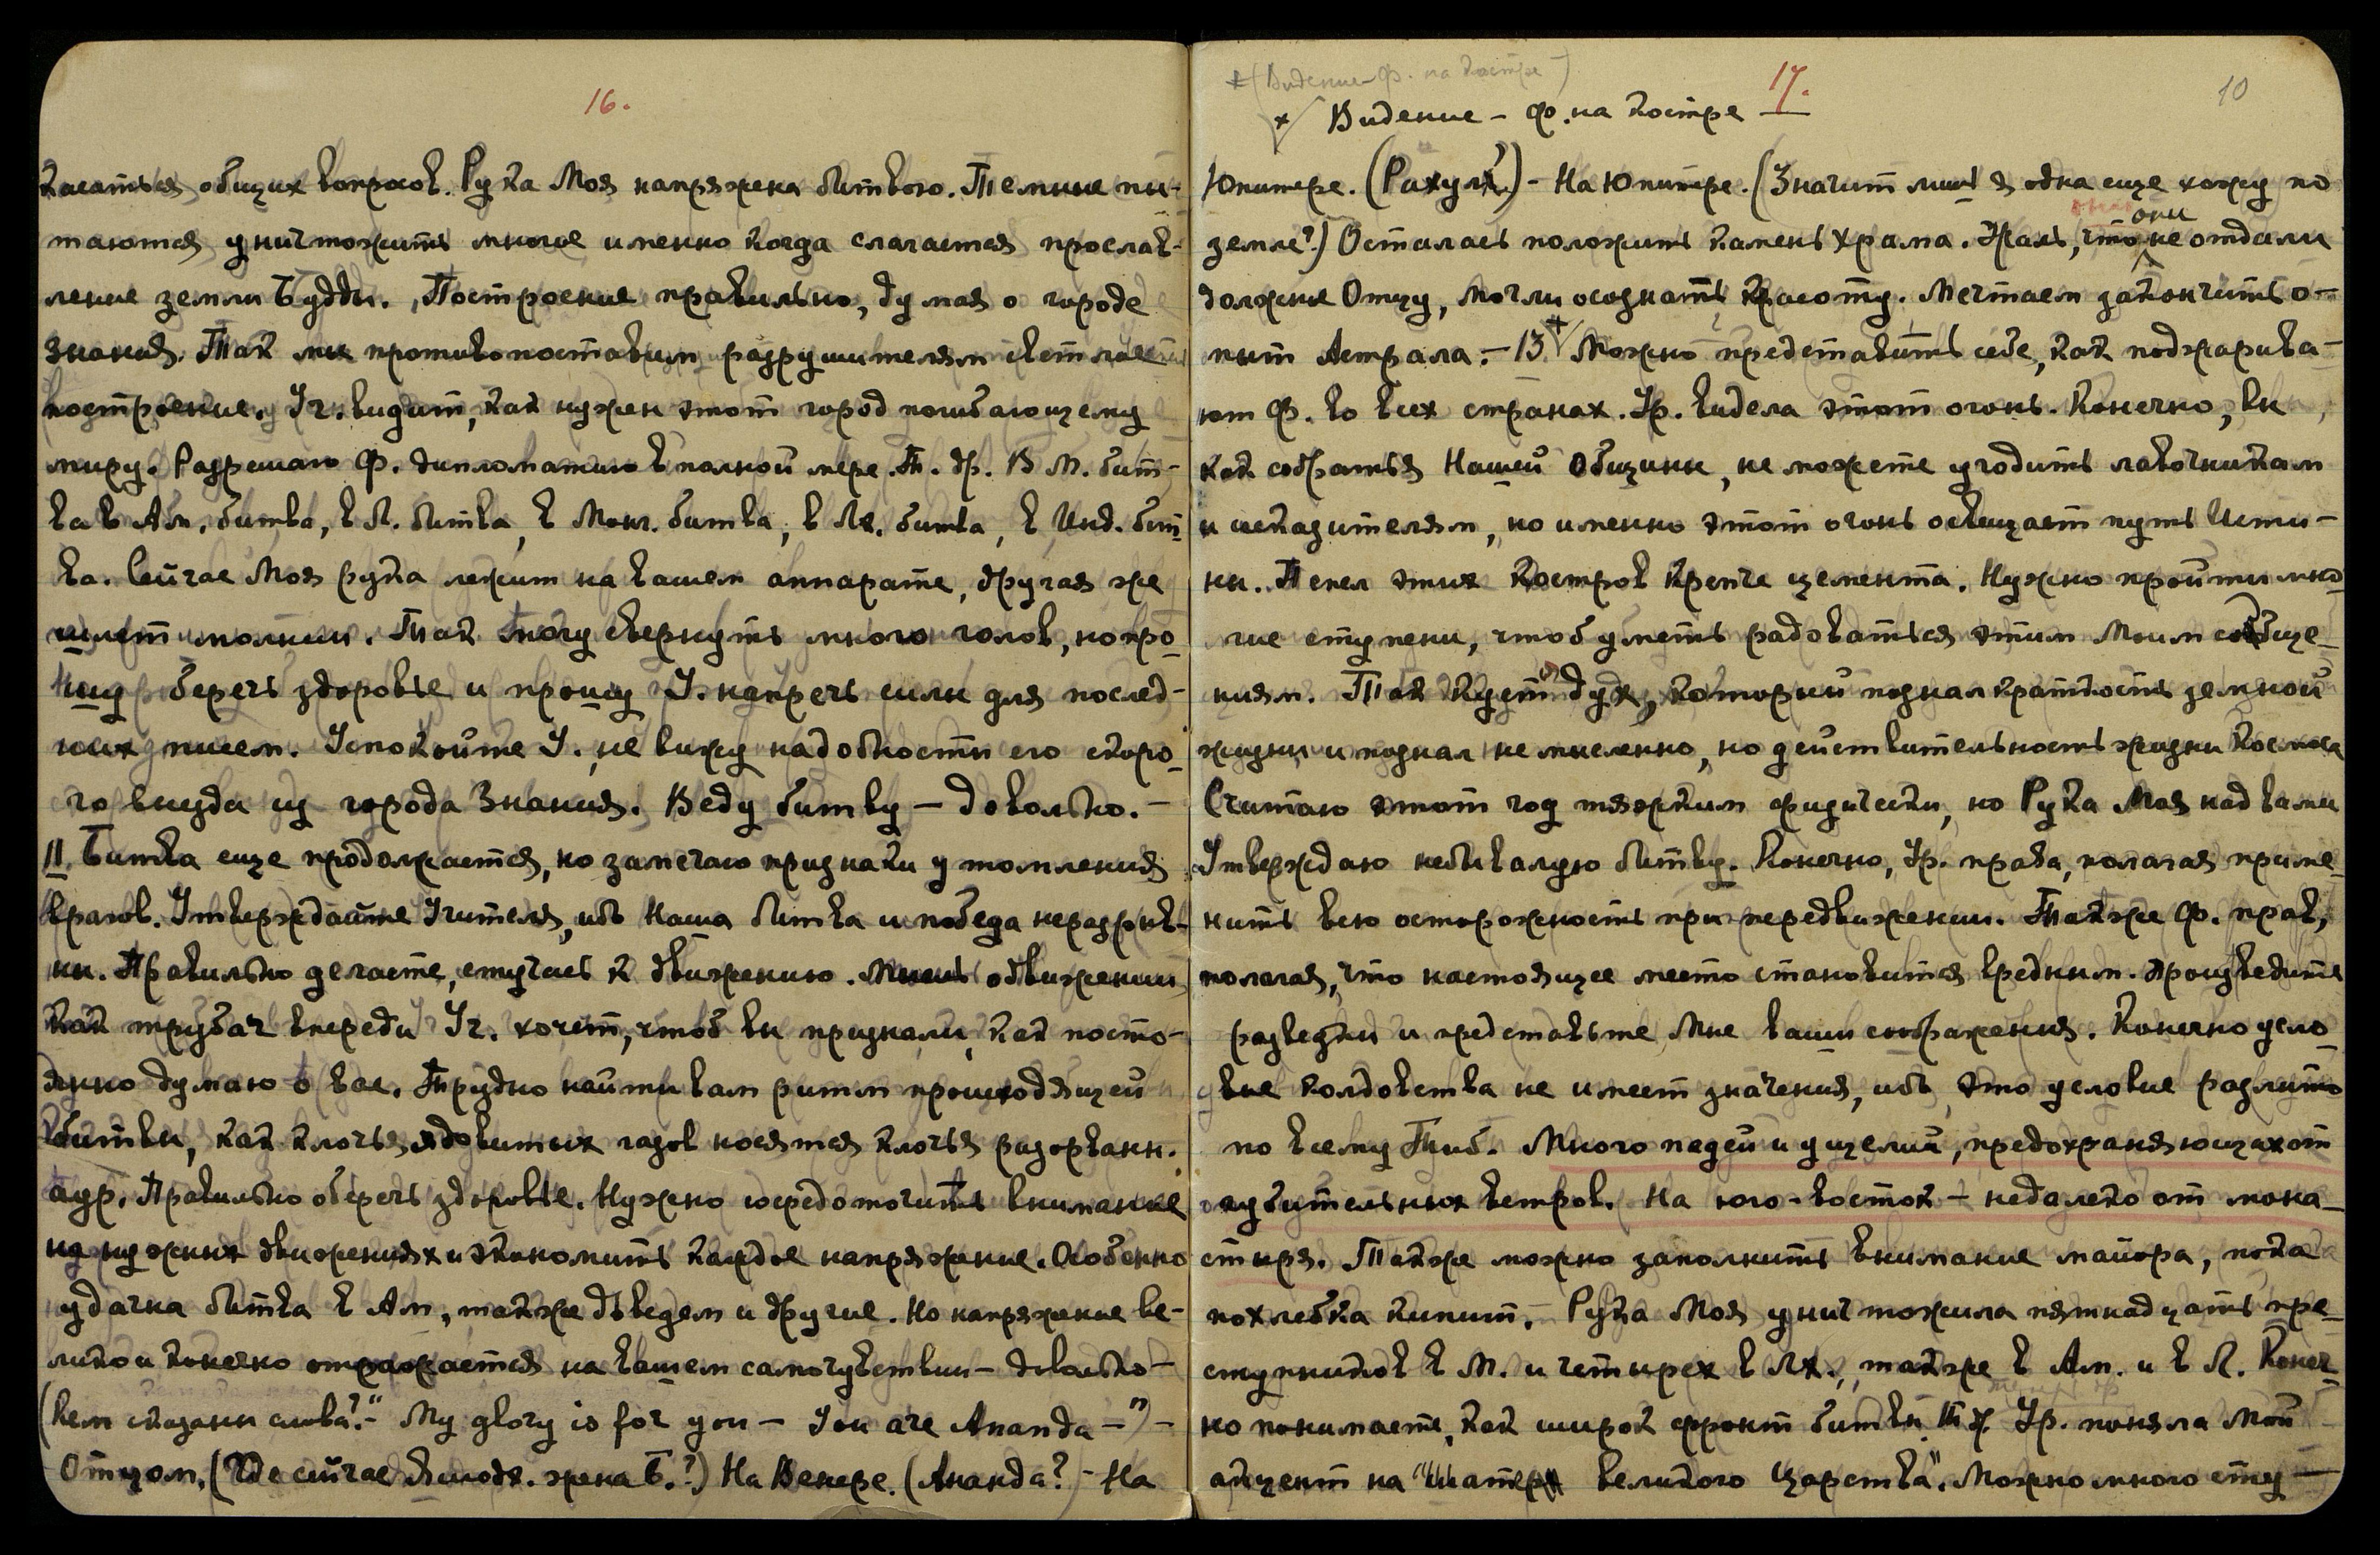 16.
касаться общих вопросов. Рука Моя напряжена битвою. Темные пы-
таются уничтожить многое именно когда слагается прослав-
ление земли Будды. Построение правильно, думая о городе
знания. Так мы противопоставим разрушителям светлое
построение. Уч. видит, как нужен этот город погибающему
миру. Разрешаю Ф. дипломатию в полной мере. Т. др. В М. бит-
ва в Ам. битва, в Л. битва, в Монг. битва, в Лх. битва, в Инд. бит
ва. Сейчас Моя рука лежит на вашем аппарате, другая же
шлет молнии. Так могу свернуть много голов, но про
шу беречь здоровье и прошу У. напречь силы для послед-
них писем. Успокойте У., не вижу надобности его скоро
го выезда из города Знания. Веду битву – довольно. –
11. Битва еще продолжается, но замечаю признаки утомления
врагов. Утверждайте Учителя, ибо Наша битва и победа неразрыв-
ны. Правильно делаете, стучась к движению. Мысль о движении
как трубач впереди Уч. хочет, чтоб вы признали, как посто-
янно думаю о вас. Трудно найти вам ритм происходящей
битвы, как клочья ядовитых газов носятся клочья разорванн.
аур. Правильно оберечь здоровье. Нужно сосредоточить внимание
на нужных движениях и экономить каждое напряжение. Особенно
удачна битва в Ам., также доведем и другие. Но напряжение ве-
лико и конечно отражается на вашем самочувствии – довольно –
(Кем сказаны слова? – " My glory is for you – You are Ananda – ") –
Отцом. (Где сейчас Яшодя. жена Б.?) На Венере. (Ананда? – На
*(Видение – Ф. на костре –)
17.
10
* Видение – Ф. на костре —
Юпитере. (Рахула?) – На Юпитере. (Значит лишь я одна еще хожу по
земле?) Осталась положить камень храма. Жаль, что они не отдали
должные Отцу, могли осознать красоту. Мечтаем закончить о-
пыт Астрала. – 13. + Можно представить себе, как поджарива-
ют Ф. во всех странах. Ур. видела этот огонь. Конечно, вы
как собратья Нашей Общины, не можете угодить лавочникам
и исказителям, но именно этот огонь освещает путь Исти-
ны. Пепел этих костров крепче цемента. Нужно пройти мно
гие ступени, чтоб уметь радоваться этим Моим сообще
ниям. Так кует дух, который познал краткость земной
жизни и познал не мысленно, но действительность жизни Космоса
Считаю этот год тяжким физически, но Рука Моя над вами
Утверждаю небывалую битву. Конечно, Ур. права, полагая приме
нить всю осторожность при передвижении. Также Ф. прав,
полагая, что настоящее место становится вредным. Произведите
разведки и представьте Мне ваши соображения. Конечно усло
вие колдовства не имеет значения, ибо это условие разлито
по всему Тиб. Много падей и ущелий, предохраняющих от
губительных ветров. На юго-восток – недалеко от мона
стыря. Также можно заполнить внимание майора, пока
похлебка кипит. Рука Моя уничтожила пятнадцать пре
ступников в М. и четырех в Лх., также в Ам. и в Л. Конеч
но понимаете, как широк фронт битвы. Т. др. Ур. поняла Мой
акцент на "Шатры великого Царства". Можно много сту –